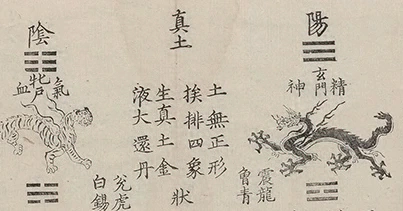 陽
精
玄門
神
震龍
曾青
真土
土無正形
挨排四象
生真土金
液大還丹
狀
陰
氣
牝戶
血
兌虎
白錫